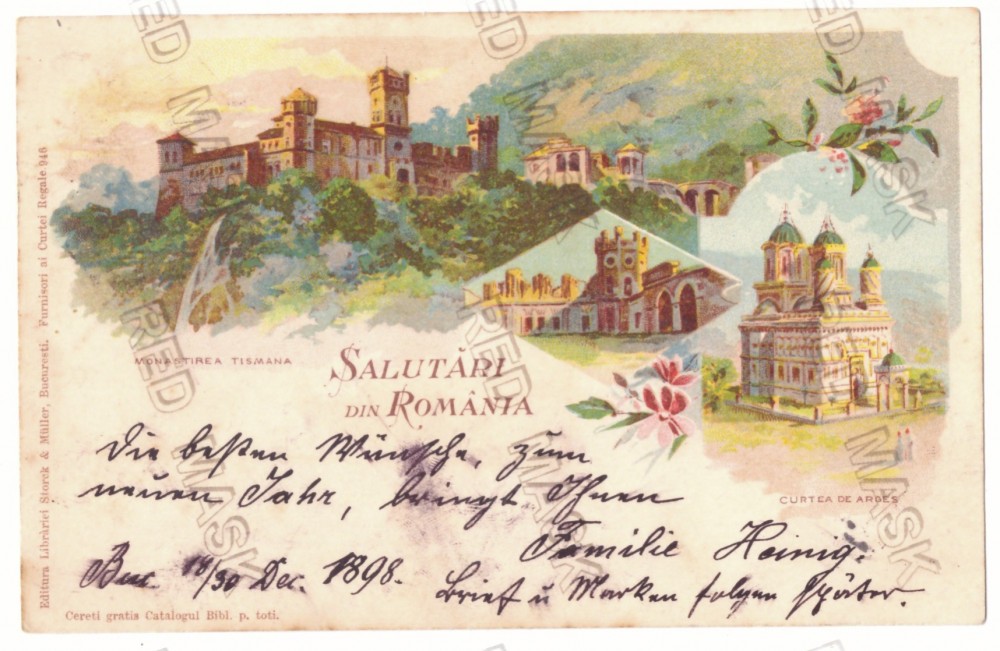 MONASTIREA TISMANA
SALUTĂRI
DIN ROMÂNIA
CURTEA DE ARGES
Die besten Wünsche, zum
neuen Jahr, bringt Ihnen
Familie Heinig.
Buc. 18/30 Dec. 1898.
Brief u Marken folgen später.
Editura Librăriei Storck & Müller, Bucuresti. Furnisori ai Curtei Regale 946
Cereti gratis Catalogul Bibl. p. toti.
RED
MASK
RED
MASK
RED
MASK
RED
MASK
RED
MASK